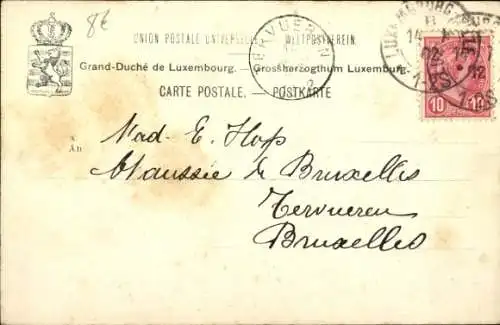 8€
UNION POSTALE UNIVERSELLE. — WELTPOSTVEREIN.
Grand-Duché de Luxembourg. — Grossherzogthum Luxemburg.
CARTE POSTALE. — POSTKARTE
TERVUEREN
LUXEMBOURG
10
A
An
Mad. E. Hop
Chaussée de Bruxelles
Tervueren
Bruxelles